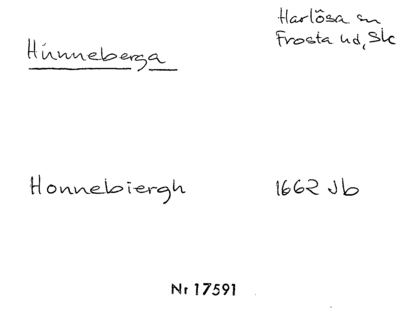 Hunneberga
Harlösa sn
Frosta hd, Sk
Honnebiergh 1662 Jb
Nr 17591